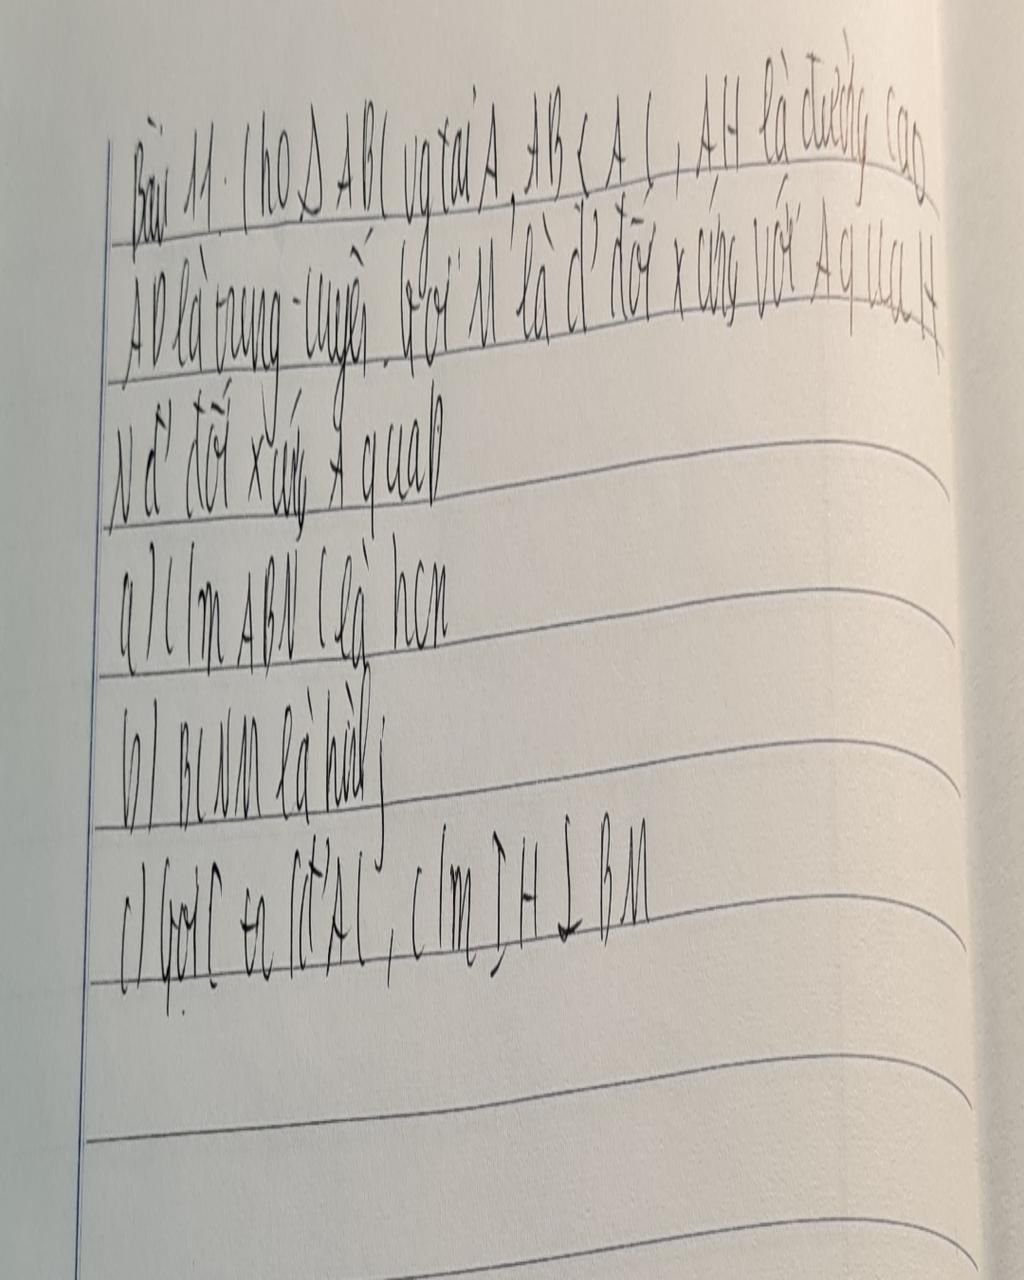 Bài 11. Cho Δ ABC vg tại A, AB < AC, AH là đường cao
AD là trung tuyến. Gọi M là đ' đối xứng với A qua H
N đ' đối xứng A qua D
a) C/m ABNC là hcn
b) BCNM là hình j
c) Gọi I là tđ' AC, c/m IH ⊥ BM